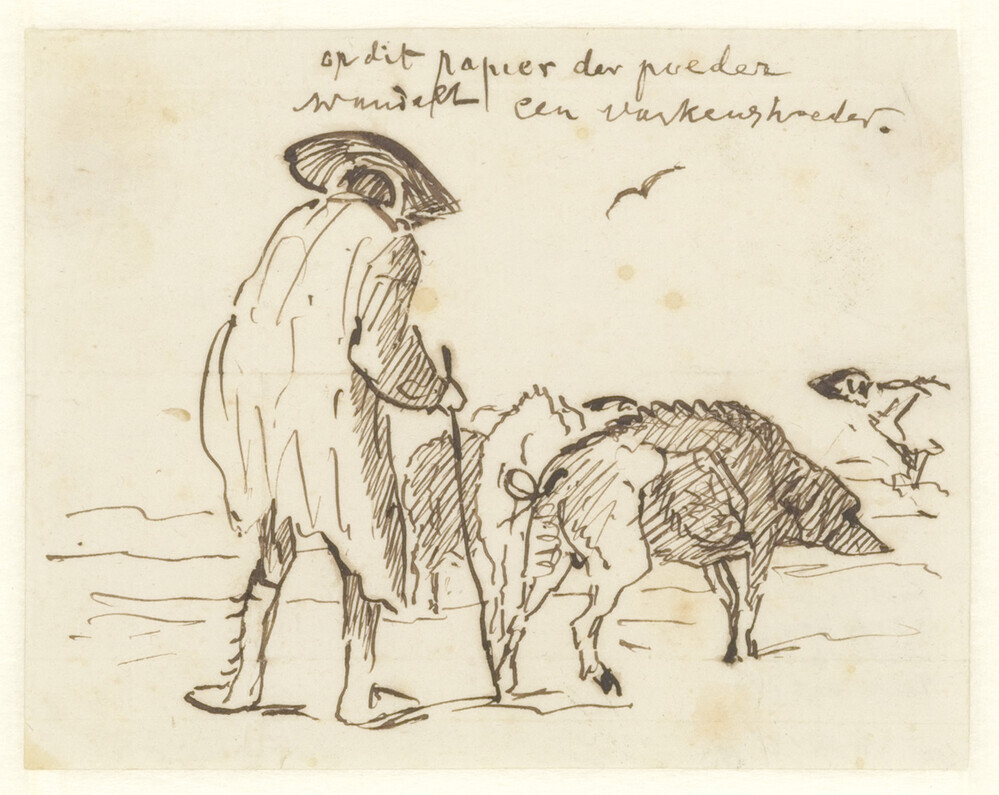 op dit papier der poeder
wandelt een varkenshoeder.